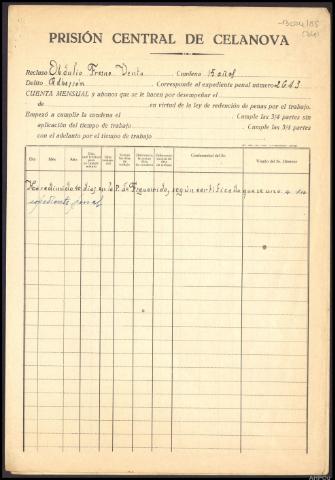 PRISIÓN CENTRAL DE CELANOVA
Recluso Obdulio Fresno Venta Condena 15 años
Delito Adhesión Corresponde al expediente penal número 2643
CUENTA MENSUAL y abonos que se le hacen por desempeñar el
de en virtud de la ley de redención de penas por el trabajo.
Empezó a cumplir la condena el Cumple las 3/4 partes sin
aplicación del tiempo de trabajo Cumple las 3/4 partes
con el adelanto por el tiempo de trabajo
Día Mes Año Conformidad del Visado del Sr. Director
Ha redimido días, en la P. de Figueirido, según certificado que se une a su
expediente penal